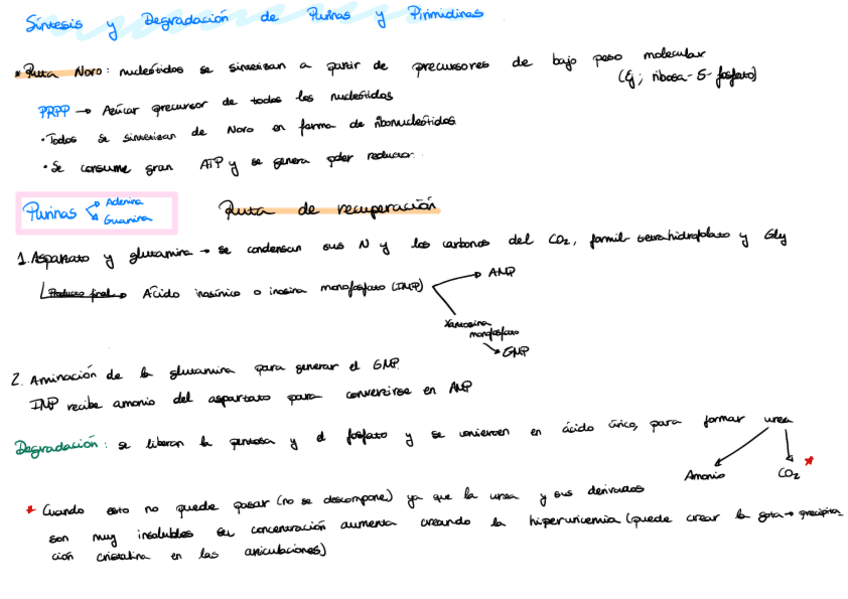 Síntesis y Degradación de Purinas y Pirimidinas
* Ruta Novo: nucleótidos se sintetizan a partir de precursores de bajo peso molecular
(Ej; ribosa-5-fosfato)
PRPP → Azúcar precursor de todos los nucleótidos
• Todos se sintetizan de Novo en forma de ribonucleótidos.
• Se consume gran ATP y se genera poder reductor.
Purinas → Adenina
→ Guanina
Ruta de recuperación
1. Aspartato y glutamina → se condensan sus N y los carbonos del CO2, formil-tetrahidrofolato y Gly
Producto final → Ácido inosínico o inosina monofosfato (IMP) → AMP
Xantosina
monofosfato
→ GMP
2. Aminación de la glutamina para generar el GMP.
IMP recibe amonio del aspartato para convertirse en AMP
Degradación: se liberan la pentosa y el fosfato y se convierten en ácido úrico, para formar urea
Amonio
CO2 *
* Cuando esto no puede pasar (no se descompone) ya que la urea y sus derivados
son muy insolubles su concentración aumenta creando la hiperuricemia (puede crear la gota → precipita
ción cristalina en las articulaciones)